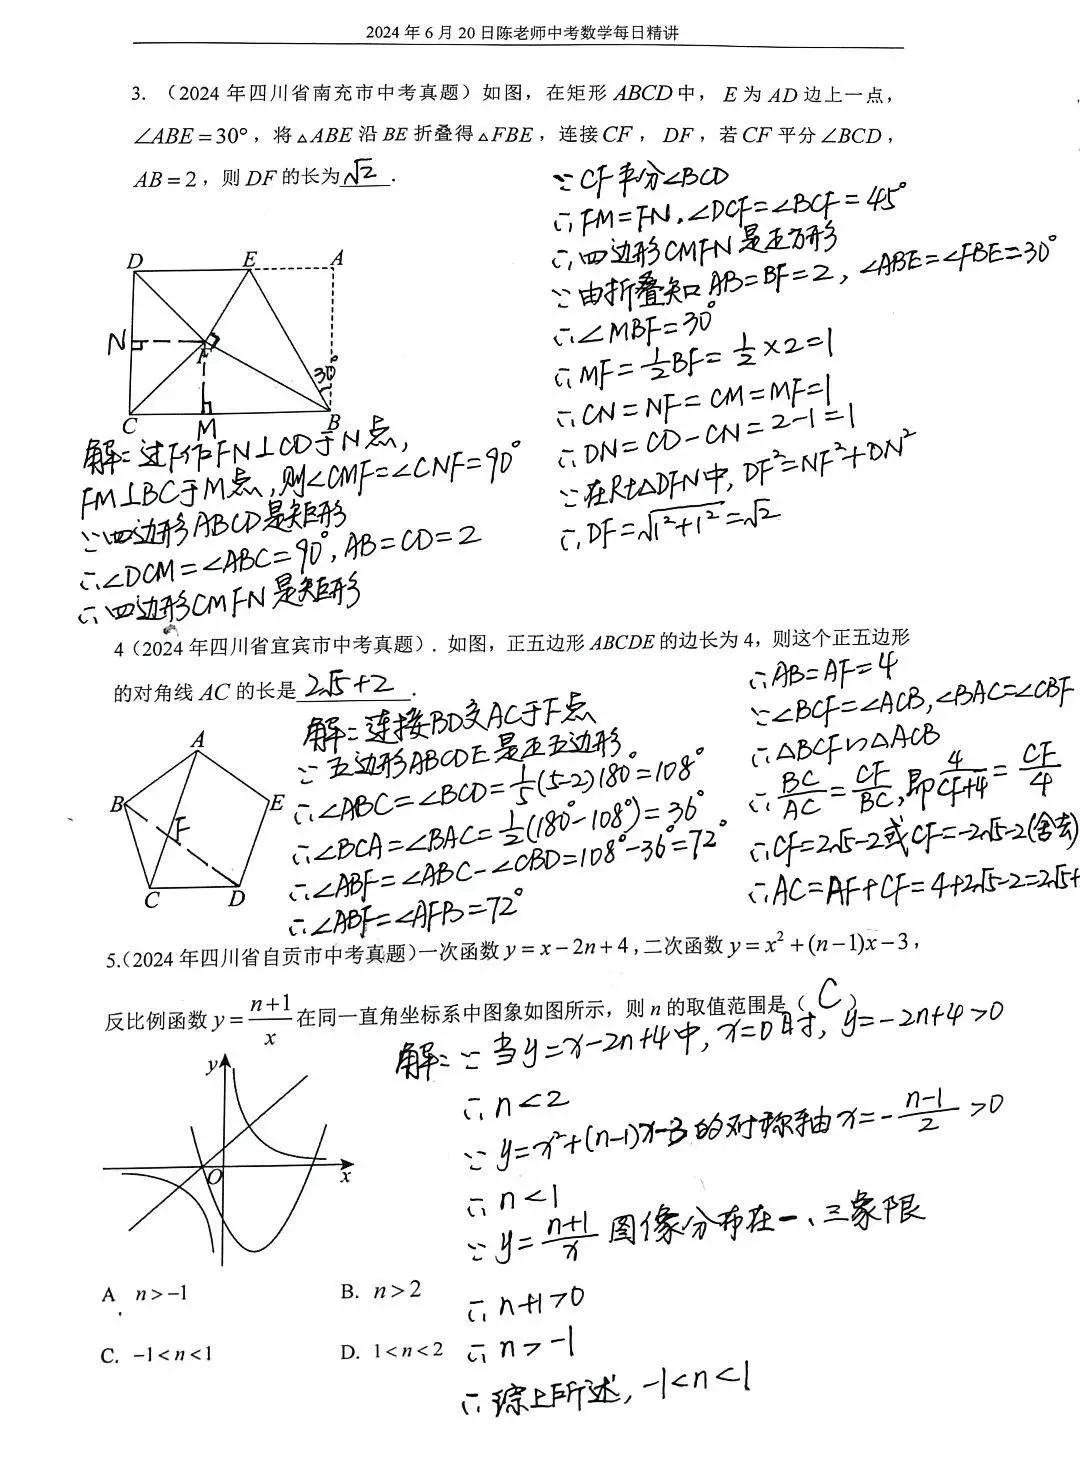 2024 年 6 月 20 日陈老师中考数学每日精讲
3. （2024 年四川省南充市中考真题）如图，在矩形 ABCD 中， E 为 AD 边上一点，
∠ABE＝30°，将△ABE 沿 BE 折叠得△FBE，连接 CF， DF，若 CF 平分∠BCD，
AB＝2，则 DF 的长为 √2 ．
∵ CF平分∠BCD
∴ FM=FN，∠DCF=∠BCF=45°
∴ 四边形CMFN是正方形
∵ 由折叠知 AB=BF=2，∠ABE=∠FBE=30°
∴ ∠MBF=30°
∴ MF=1/2BF=1/2×2=1
∴ CN=NF=CM=MF=1
∴ DN=CD-CN=2-1=1
∵ 在Rt△DFN中，DF²=NF²+DN²
∴ DF=√(1²+1²)=√2
D E A
N F 30°
C M B
解：过F作FN⊥CD于N点，
FM⊥BC于M点，则∠CMF=∠CNF=90°
∵ 四边形ABCD是矩形
∴ ∠DCM=∠ABC=90°，AB=CD=2
∴ 四边形CMFN是矩形
4（2024 年四川省宜宾市中考真题）．如图，正五边形 ABCDE 的边长为 4，则这个正五边形
的对角线 AC 的长是 2√5+2 ．
A
B E
F
C D
解：连接BD交AC于F点
∵ 五边形ABCDE是正五边形
∴ ∠ABC=∠BCD=1/5(5-2)180°=108°
∴ ∠BCA=∠BAC=1/2(180°-108°)=36°
∴ ∠ABF=∠ABC-∠CBD=108°-36°=72°
∴ ∠ABF=∠AFB=72°
∴ AB=AF=4
∵ ∠BCF=∠ACB，∠BAC=∠CBF
∴ △BCF∽△ACB
∴ BC/AC=CF/BC，即4/(CF+4)=CF/4
∴ CF=2√5-2或CF=-2√5-2(舍去)
∴ AC=AF+CF=4+2√5-2=2√5+
5.（2024 年四川省自贡市中考真题）一次函数 y＝x－2n＋4，二次函数 y＝x²＋(n－1)x－3，
反比例函数 y＝(n＋1)/x 在同一直角坐标系中图象如图所示，则 n 的取值范围是（ C ）
y
O x
解：∵ 当y=x-2n+4中，x=0时，y=-2n+4>0
∴ n<2
∵ y=x²+(n-1)x-3的对称轴x=-(n-1)/2>0
∴ n<1
∵ y=(n+1)/x 图像分布在一、三象限
∴ n+1>0
∴ n>-1
∴ 综上所述，-1<n<1
A n＞-1 B. n＞2
C. -1＜n＜1 D. 1＜n＜2